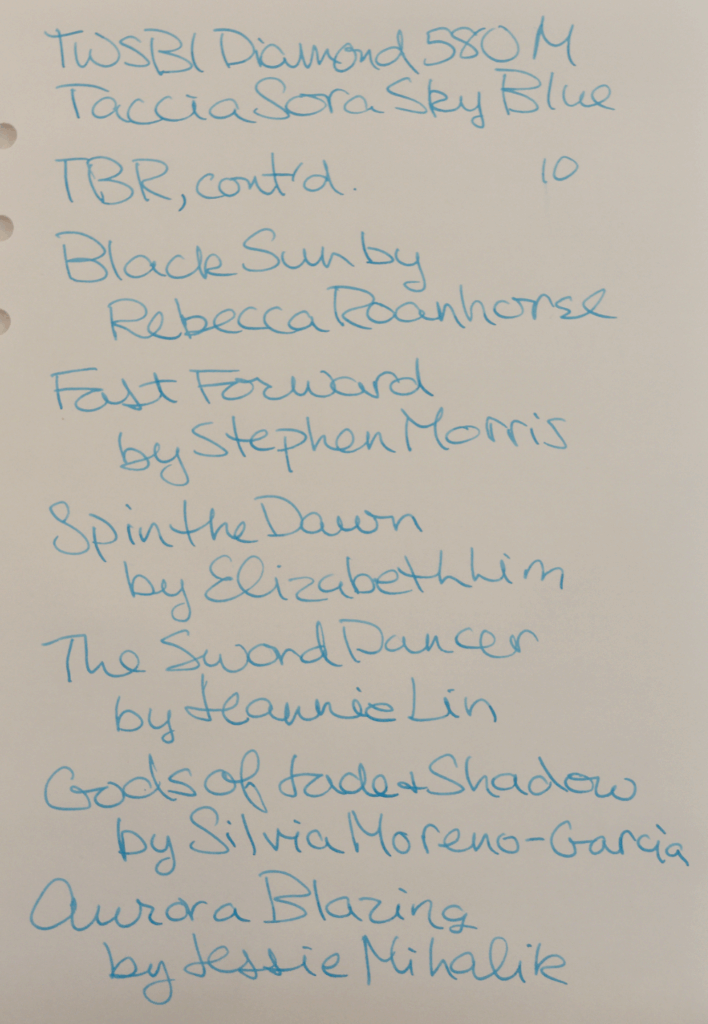 TWSBI Diamond 580 M
Taccia Sora Sky Blue
TBR, cont'd. 10
Black Sun by
Rebecca Roanhorse
Fast Forward
by Stephen Morris
Spin the Dawn
by Elizabeth Lim
The Sword Dancer
by Jeannie Lin
Gods of Jade + Shadow
by Silvia Moreno-Garcia
Aurora Blazing
by Jessie Mihalik